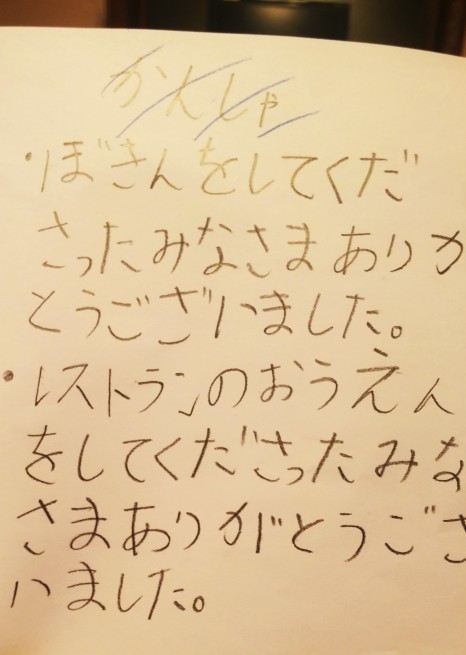 かんしゃ
・ぼきんをしてくだ
さったみなさまありか
とうございました。
・レストランのおうえん
をしてくださったみな
さまありがとうござ
いました。